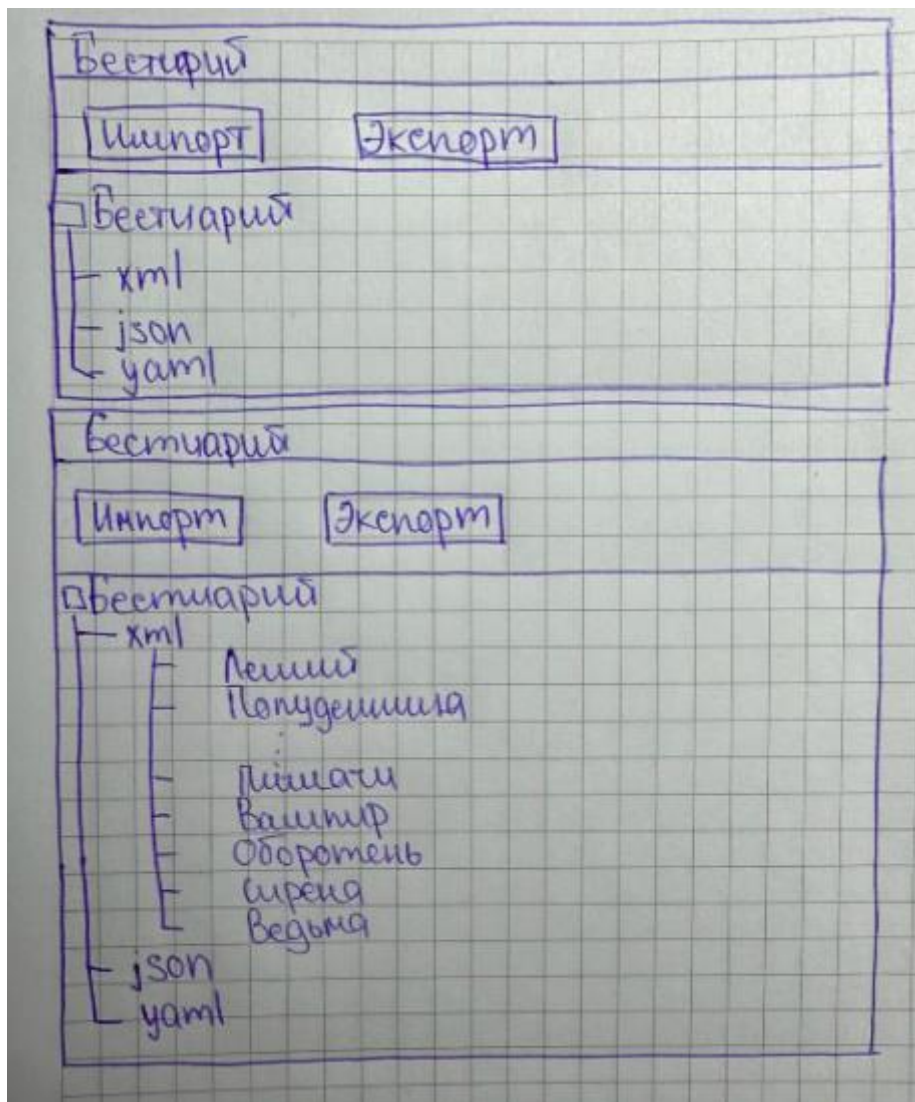 Бестиарий
Импорт Экспорт
Бестиарий
xml
json
yaml
Бестиарий
Импорт Экспорт
Бестиарий
xml
Леший
⋮
Вампир
Оборотень
Сирена
Ведьма
json
yaml